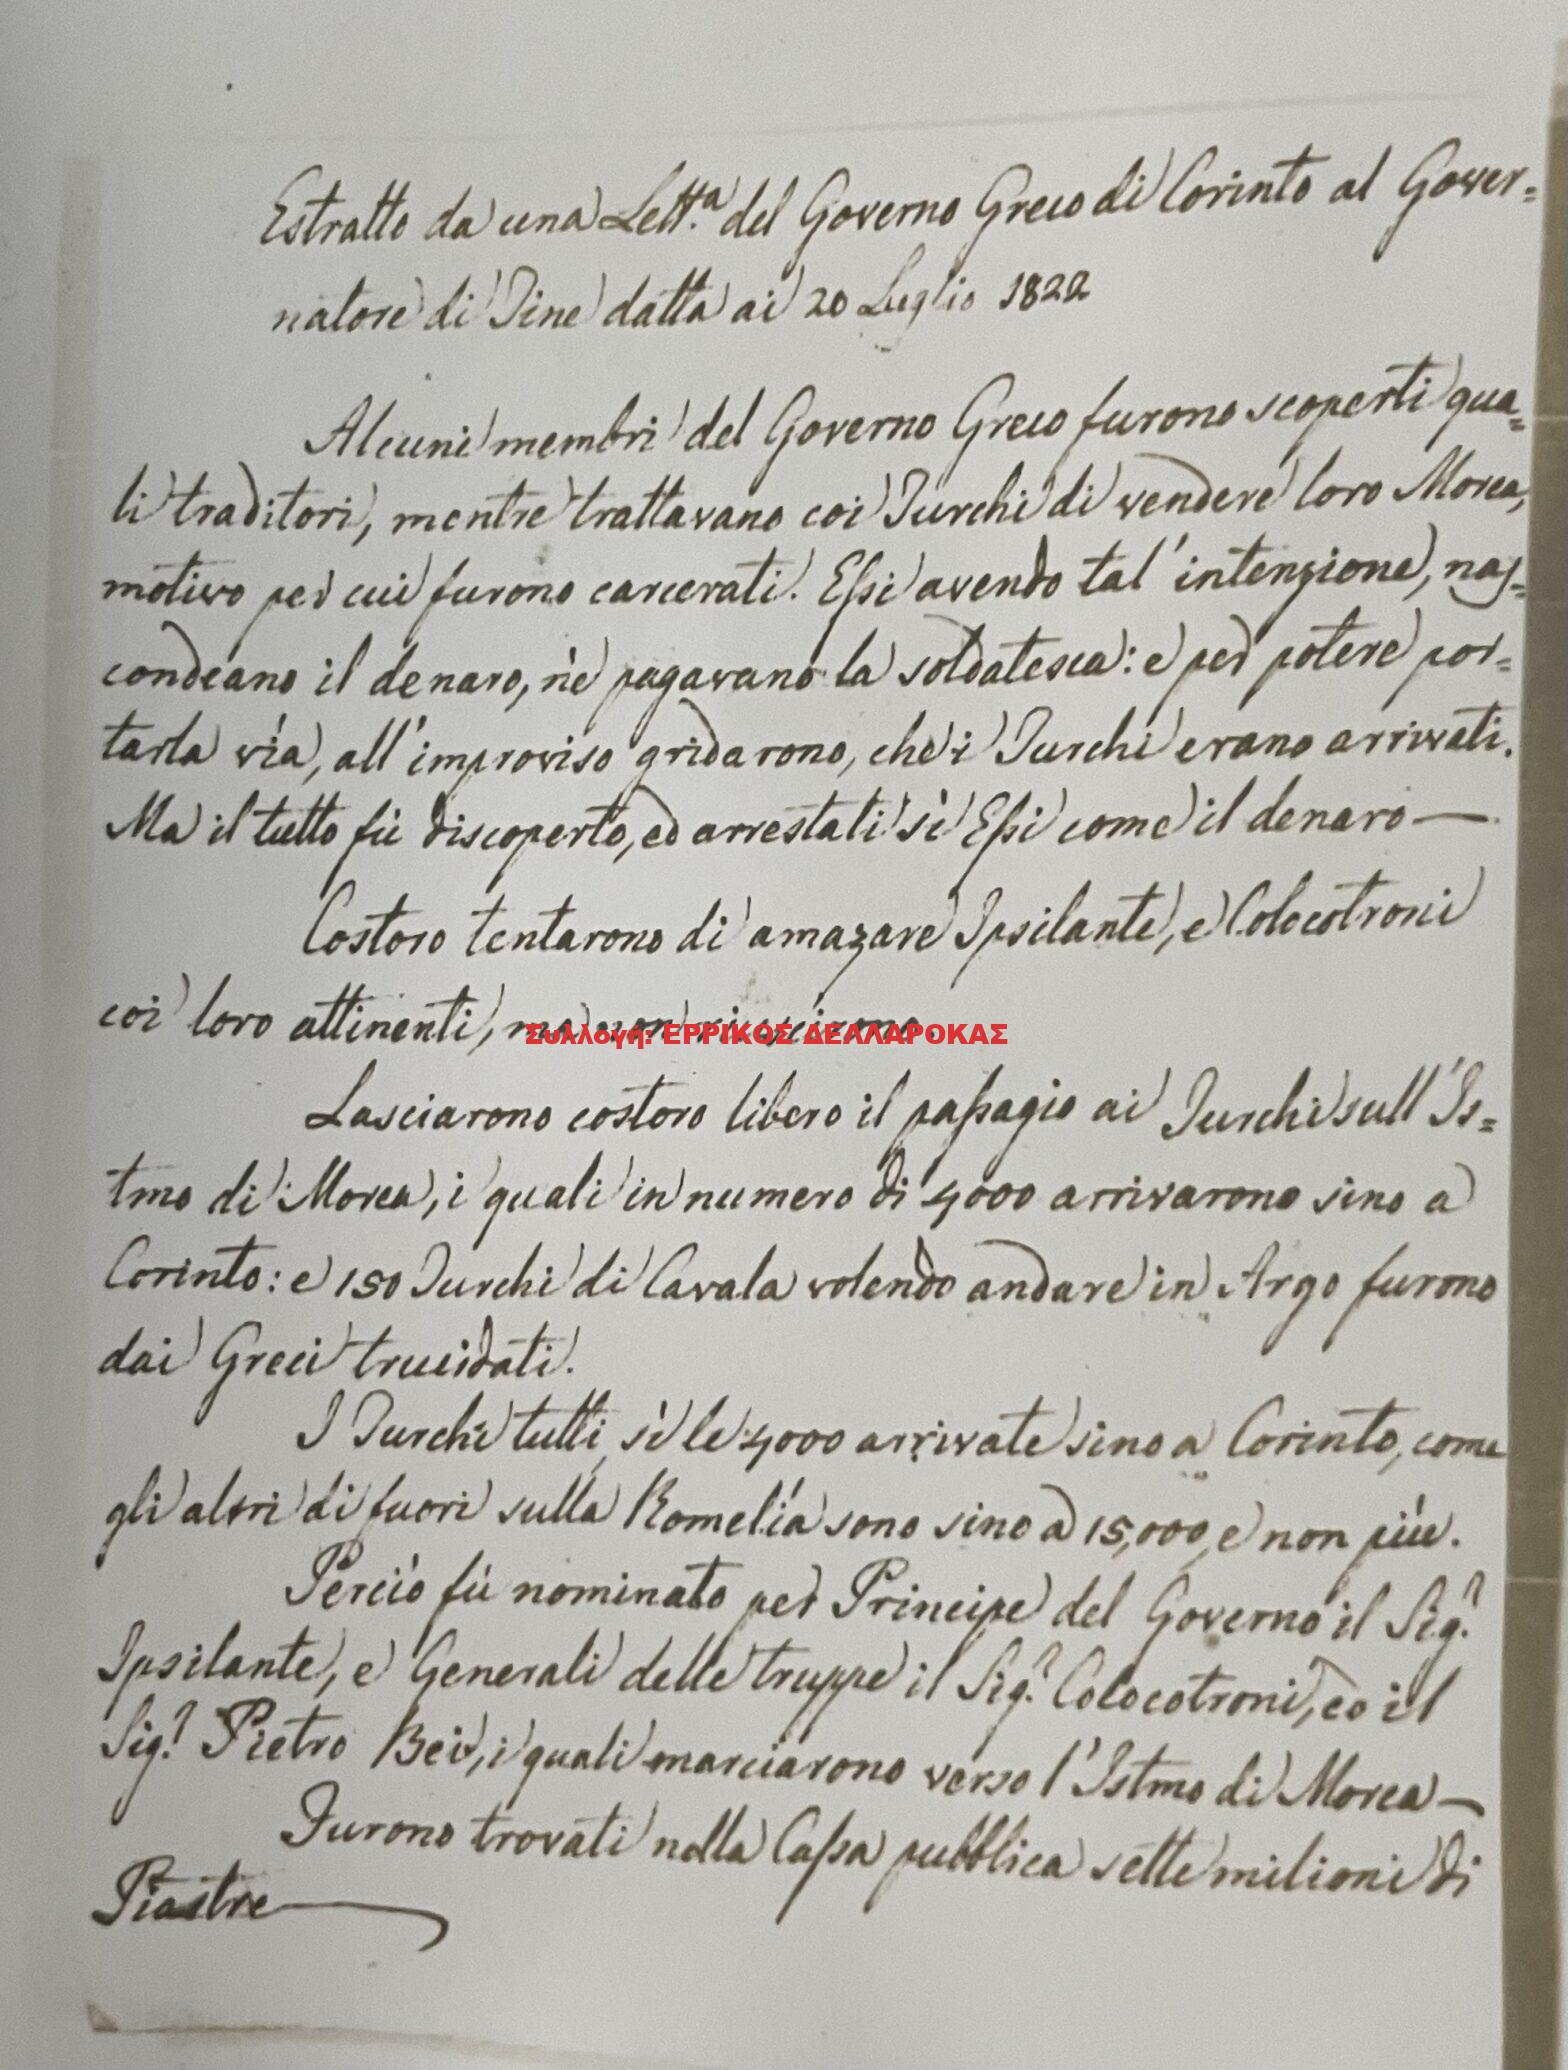 Estratto da una Lett.ª del Governo Greco di Corinto al Gover=
natore di Tine datta ai 20 Luglio 1822
Alcuni membri del Governo Greco furono scoperti qua=
li traditori, mentre trattavano coi Turchi di vendere loro Morea,
motivo per cui furono carcerati. Essi avendo tal' intenzione, nas=
condeano il denaro, nè pagavano la soldatesca: e per potere por=
tarla vìa, all' improviso gridarono, che i Turchi erano arrivati.
Ma il tutto fù discoperto, ed arrestati sì Essi come il denaro —
Costoro tentarono di amazare Ipsilante, e Colocotroni
coi loro attinenti, ma non riuscirono
Συλλογή: ΕΡΡΙΚΟΣ ΔΕΛΛΑΡΟΚΑΣ
Lasciarono costoro libero il passagio ai Turchi sull' Is=
tmo di Morea, i quali in numero di 4000 arrivarono sino a
Corinto: e 150 Turchi di Cavala volendo andare in Argo furono
dai Greci trucidati.
I Turchi tutti, sì le 4000 arrivate sino a Corinto, come
gli altri di fuori sulla Romelía sono sino a 15,000, e non più.
Perciò fù nominato per Principe del Governo il Sig.r
Ipsilante, e Generali delle truppe il Sig.r Colocotroni, ed il
Sig.r Pietro Bei, i quali marciarono verso l' Istmo di Morea —
Furono trovati nella Cassa pubblica sette milioni di
Piastre